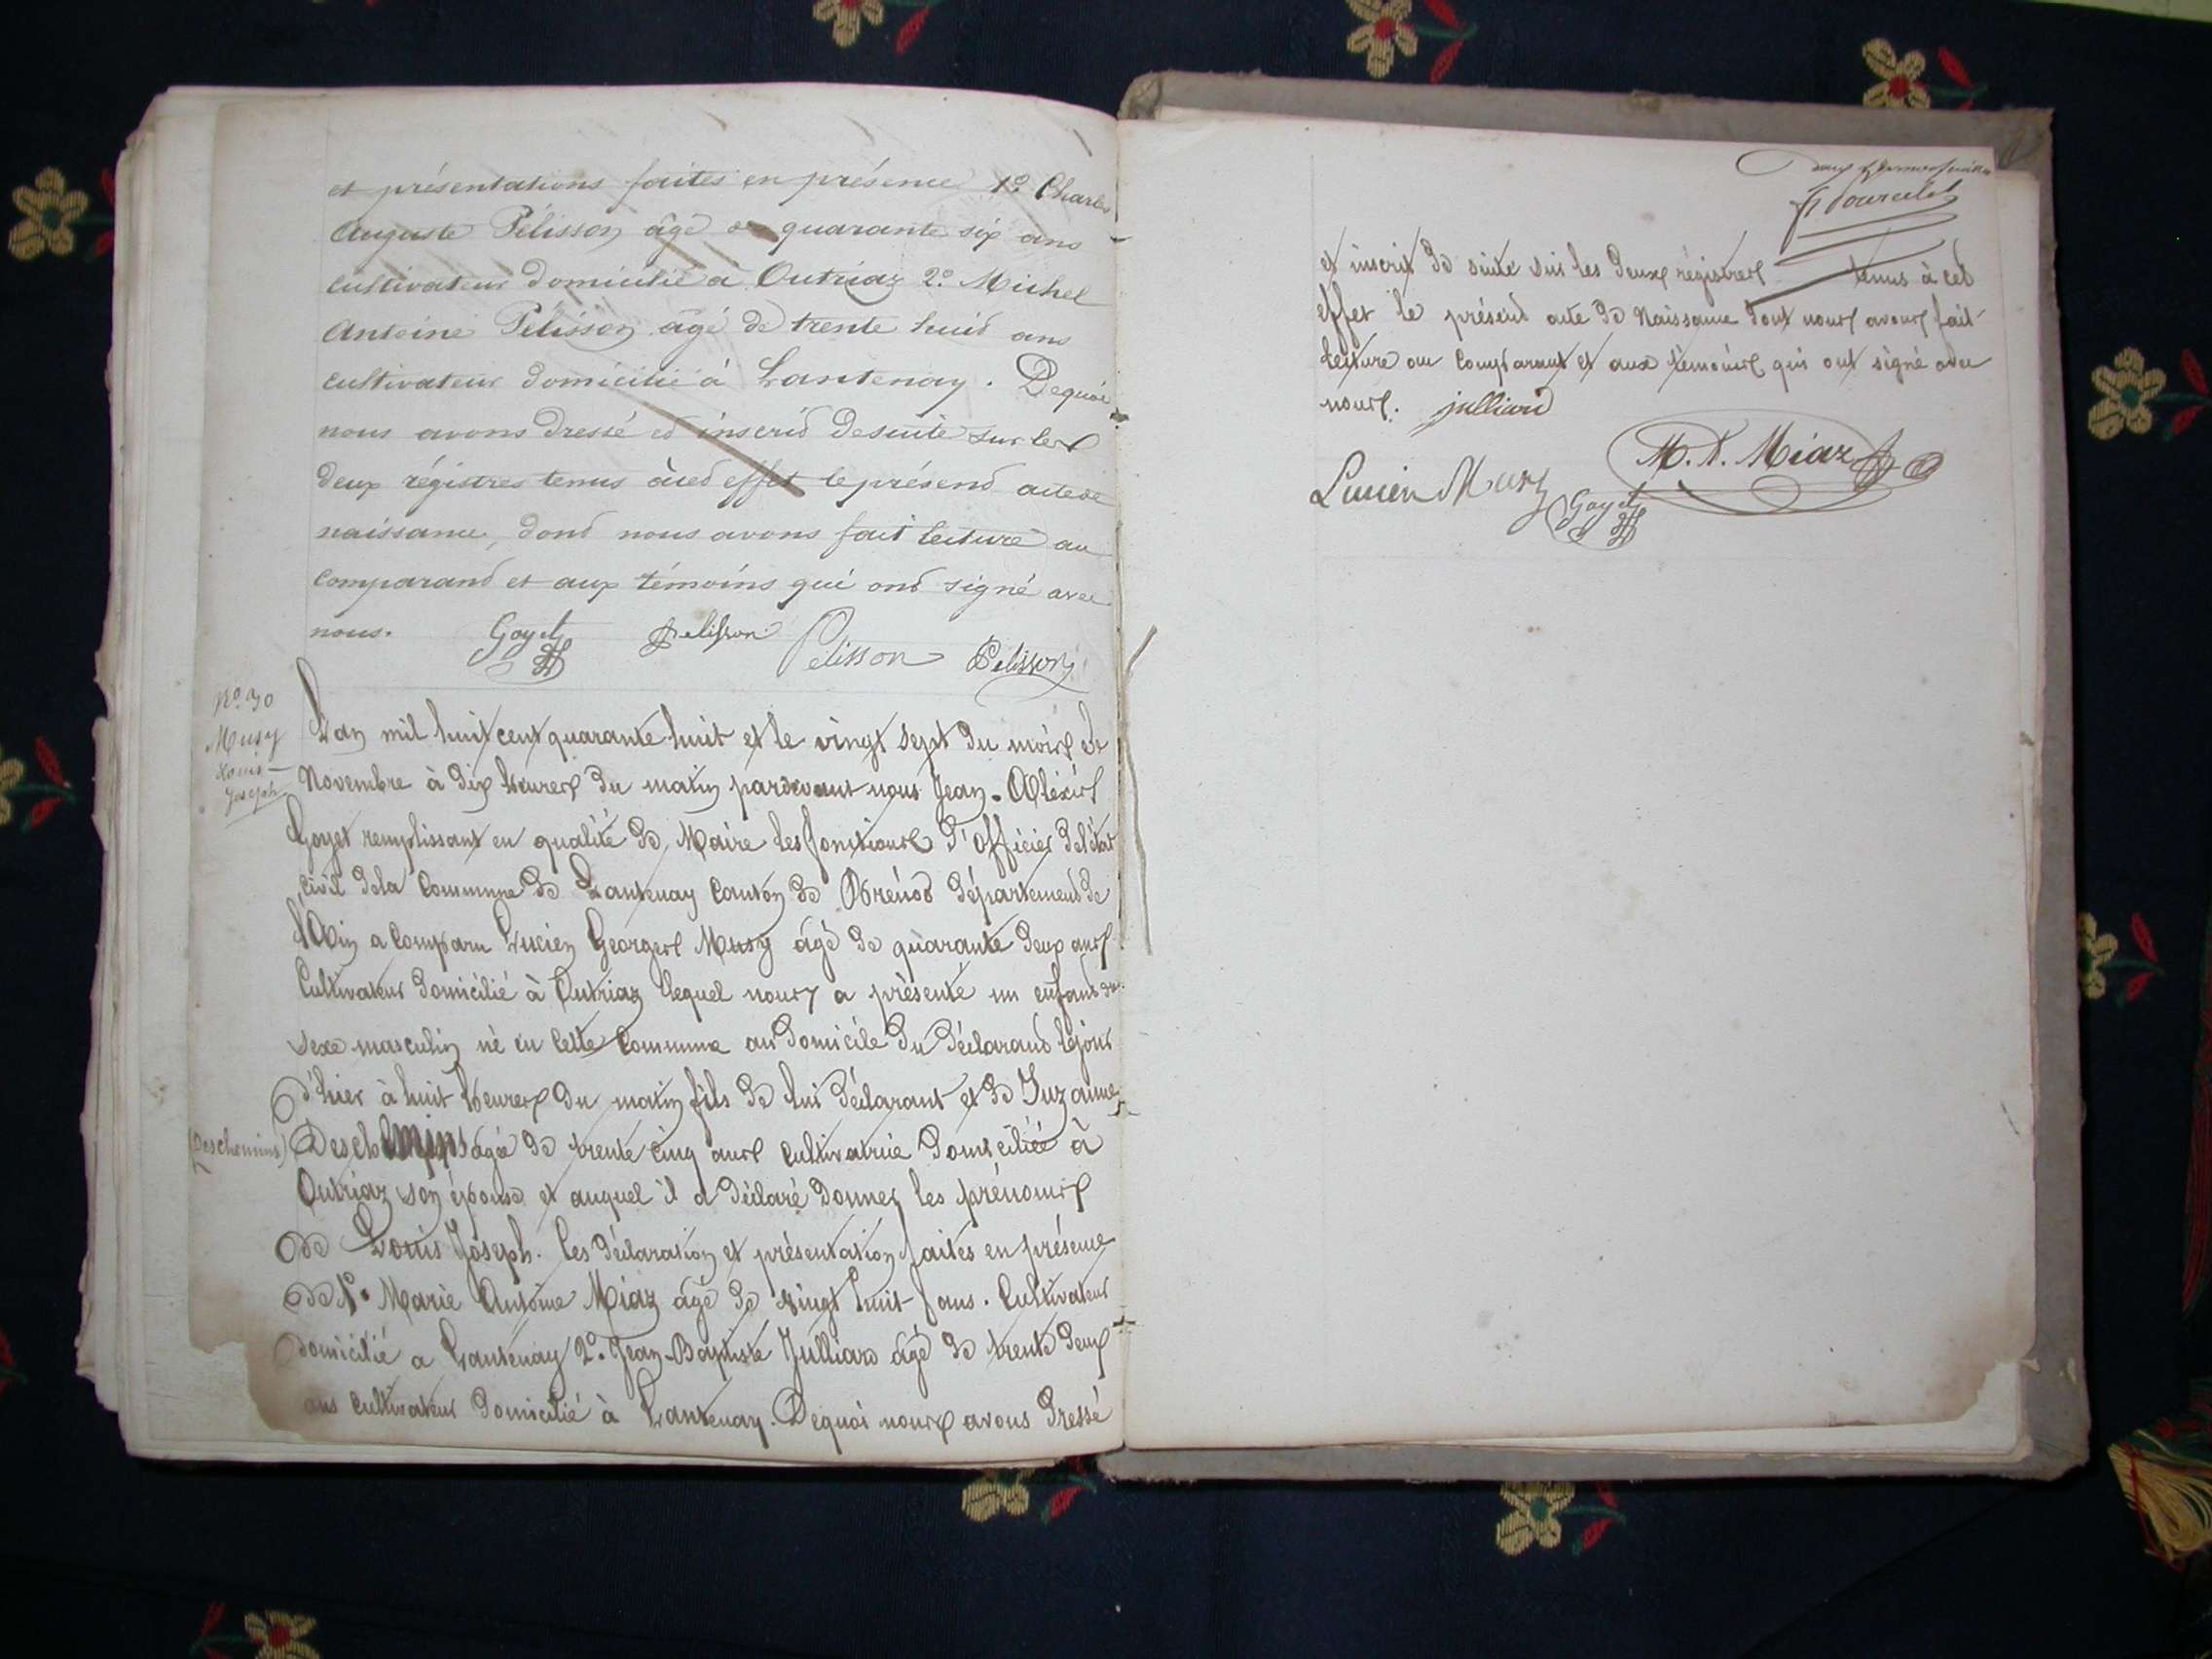 et présentations faites en présence 1º Charles
Auguste Pélisson âgé de quarante six ans
cultivateur domicilié à Outriaz 2º Michel
Antoine Pélisson âgé de trente huit ans
cultivateur domicilié à Lantenay. Dequoi
nous avons dressé et inscrit desuite sur les
deux régistres tenus à cet effet le présent acte de
naissance, dont nous avons fait lecture au
comparant et aux témoins qui ont signé avec
nous. Goyet Pelisson Pelisson Pelisson
Nº 30
Musy
Louis-
Joseph
L'an mil huit cent quarante huit et le vingt sept du mois de
Novembre à dix heures du matin pardevant nous Jean-Alexis
Goyet remplissant en qualité de Maire les fonctions d'officier de l'état
civil dela Commune de Lantenay Canton de Brénod département de
l'Ain a comparu Lucien Georges Musy âgé de quarante deux ans
Cultivateur domicilié à Outriaz lequel nous a présenté un enfant du
sexe masculin né en cette Commune au domicile du déclarant le jour
d'hier à huit heures du matin fils de lui déclarant et de Suzanne
(Deschemins) Deschemins âgée de trente cinq ans cultivatrice domiciliée à
Outriaz son épouse et auquel il a déclaré donner les prénoms
de Louis Joseph. les déclaration et présentation faites en présence
de 1º Marie Antoine Miaz âgé de vingt huit ans. Cultivateur
domicilié a Lantenay 2º. Jean-Baptiste Julliard âgé de trente deux
ans cultivateur domicilié à Lantenay. Dequoi nous avons dressé
et inscrit de suite sur les deux régistres tenus à cet
effet le présent acte de Naissance dont nous avons fait
lecture au comparant et aux témoins qui ont signé avec
nous. julliard
M. A. Miaz
Lucien Musy Goyet